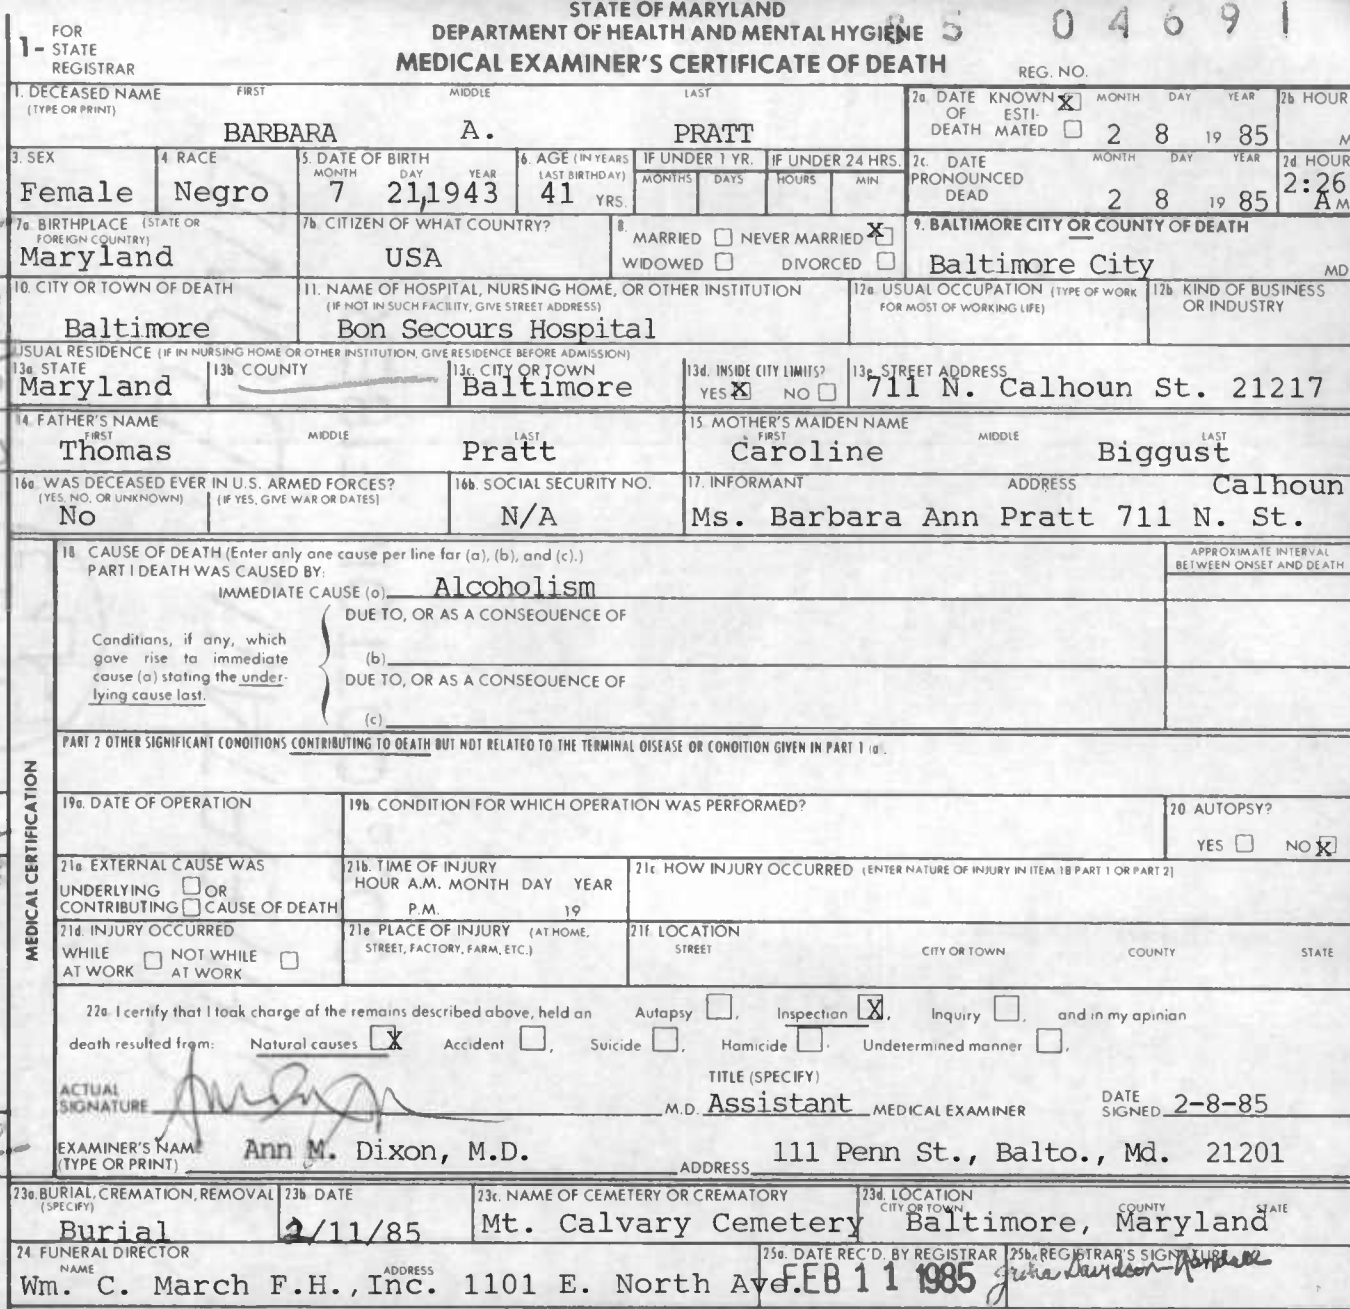 STATE OF MARYLAND
DEPARTMENT OF HEALTH AND MENTAL HYGIENE
MEDICAL EXAMINER'S CERTIFICATE OF DEATH
1- FOR STATE REGISTRAR
85 04691
REG. NO.
1. DECEASED NAME (TYPE OR PRINT) FIRST MIDDLE LAST
BARBARA A. PRATT
2a DATE OF DEATH KNOWN X ESTIMATED MONTH DAY YEAR
2 8 19 85
2b HOUR
M
3. SEX
Female
4 RACE
Negro
5. DATE OF BIRTH MONTH DAY YEAR
7 21,1943
6. AGE (IN YEARS LAST BIRTHDAY)
41 YRS.
IF UNDER 1 YR. MONTHS DAYS
IF UNDER 24 HRS. HOURS MIN
2c. DATE PRONOUNCED DEAD MONTH DAY YEAR
2 8 19 85
2d HOUR
2:26 A M
7a. BIRTHPLACE (STATE OR FOREIGN COUNTRY)
Maryland
7b. CITIZEN OF WHAT COUNTRY?
USA
8. MARRIED NEVER MARRIED X
WIDOWED DIVORCED
9. BALTIMORE CITY OR COUNTY OF DEATH
Baltimore City MD
10. CITY OR TOWN OF DEATH
Baltimore
11. NAME OF HOSPITAL, NURSING HOME, OR OTHER INSTITUTION
(IF NOT IN SUCH FACILITY, GIVE STREET ADDRESS)
Bon Secours Hospital
12a USUAL OCCUPATION (TYPE OF WORK FOR MOST OF WORKING LIFE)
12b KIND OF BUSINESS OR INDUSTRY
USUAL RESIDENCE (IF IN NURSING HOME OR OTHER INSTITUTION, GIVE RESIDENCE BEFORE ADMISSION)
13a STATE
Maryland
13b COUNTY
13c. CITY OR TOWN
Baltimore
13d. INSIDE CITY LIMITS?
YES X NO
13e. STREET ADDRESS
711 N. Calhoun St. 21217
14 FATHER'S NAME FIRST MIDDLE LAST
Thomas Pratt
15. MOTHER'S MAIDEN NAME FIRST MIDDLE LAST
Caroline Biggust
16a WAS DECEASED EVER IN U.S. ARMED FORCES?
(YES, NO, OR UNKNOWN) (IF YES, GIVE WAR OR DATES)
No
16b. SOCIAL SECURITY NO.
N/A
17. INFORMANT ADDRESS
Calhoun
Ms. Barbara Ann Pratt 711 N. St.
MEDICAL CERTIFICATION
18 CAUSE OF DEATH (Enter only one cause per line for (a), (b), and (c).)
PART I DEATH WAS CAUSED BY:
IMMEDIATE CAUSE (a) Alcoholism
APPROXIMATE INTERVAL BETWEEN ONSET AND DEATH
DUE TO, OR AS A CONSEQUENCE OF
Conditions, if any, which
gave rise to immediate
cause (a) stating the under-
lying cause last.
(b)
DUE TO, OR AS A CONSEQUENCE OF
(c)
PART 2 OTHER SIGNIFICANT CONDITIONS CONTRIBUTING TO DEATH BUT NOT RELATED TO THE TERMINAL DISEASE OR CONDITION GIVEN IN PART 1 (a).
19a. DATE OF OPERATION
19b CONDITION FOR WHICH OPERATION WAS PERFORMED?
20 AUTOPSY?
YES NO X
21a EXTERNAL CAUSE WAS
UNDERLYING OR
CONTRIBUTING CAUSE OF DEATH
21b. TIME OF INJURY
HOUR A.M. MONTH DAY YEAR
P.M. 19
21c HOW INJURY OCCURRED (ENTER NATURE OF INJURY IN ITEM 18 PART 1 OR PART 2)
21d. INJURY OCCURRED
WHILE AT WORK NOT WHILE AT WORK
21e PLACE OF INJURY (AT HOME, STREET, FACTORY, FARM, ETC.)
21f. LOCATION
STREET CITY OR TOWN COUNTY STATE
22a I certify that I took charge of the remains described above, held an Autopsy , Inspection X, Inquiry , and in my opinion
death resulted from: Natural causes X Accident , Suicide , Homicide . Undetermined manner .
ACTUAL SIGNATURE
TITLE (SPECIFY)
M.D. Assistant MEDICAL EXAMINER
DATE SIGNED 2-8-85
EXAMINER'S NAME (TYPE OR PRINT) Ann M. Dixon, M.D.
ADDRESS 111 Penn St., Balto., Md. 21201
23a. BURIAL, CREMATION, REMOVAL (SPECIFY)
Burial
23b DATE
2/11/85
23c. NAME OF CEMETERY OR CREMATORY
Mt. Calvary Cemetery
23d. LOCATION CITY OR TOWN COUNTY STATE
Baltimore, Maryland
24 FUNERAL DIRECTOR
NAME ADDRESS
Wm. C. March F.H.,Inc. 1101 E. North Ave.
25a. DATE REC'D. BY REGISTRAR
FEB 11 1985
25b. REGISTRAR'S SIGNATURE
Julia Davidson-Randall